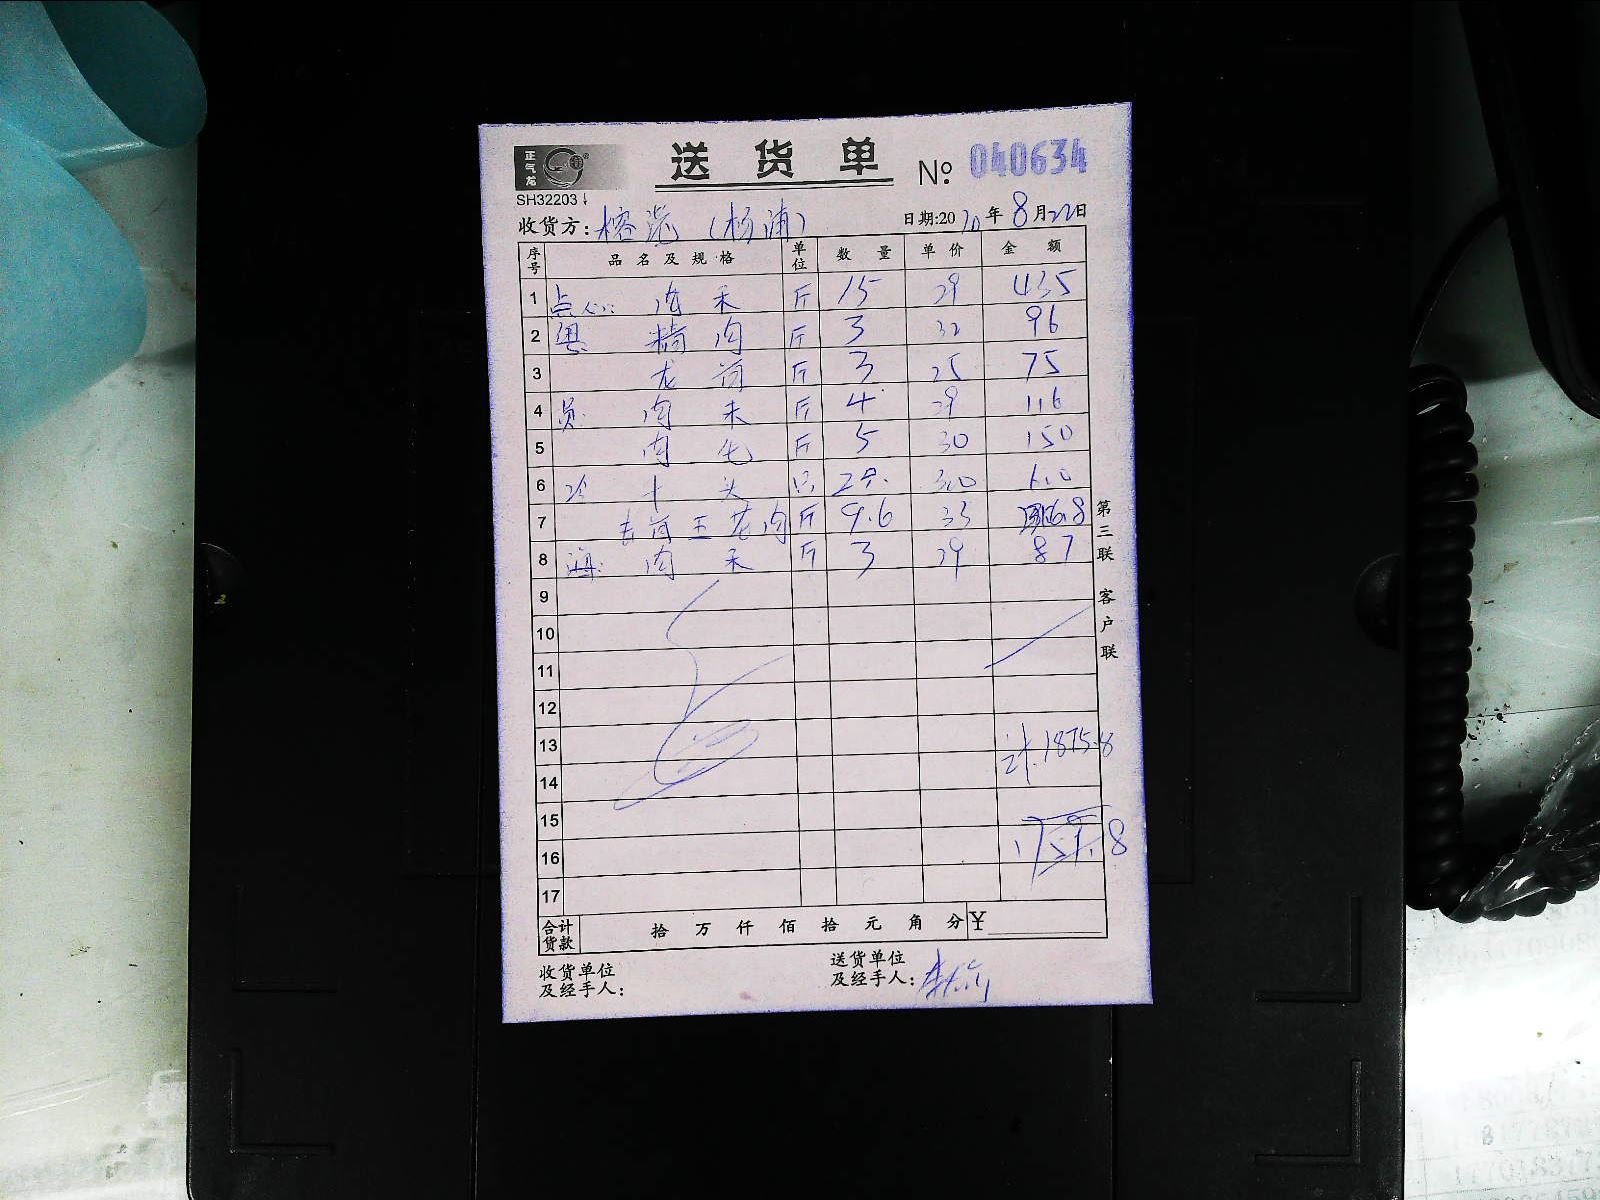 正气龙
送货单
No. 040634
SH32203
收货方: 榕港(杨浦)
日期:2020年8月22日
序号 品名及规格 单位 数量 单价 金额
1 点心: 肉末 斤 15 29 435
2 粤 精肉 斤 3 32 96
3 龙骨 斤 3 25 75
4 员: 肉末 斤 4 29 116
5 肉 斤 5 30 150
6 冷 28. 
7 去骨五花肉 斤 9.6 33 316.8
8 海: 肉末 斤 3 29 87
9
10
11
12
13 计 1875.8
14
15
16
17
合计货款 拾 万 仟 佰 拾 元 角 分 ¥
收货单位及经手人:
送货单位及经手人:
第三联 客户联